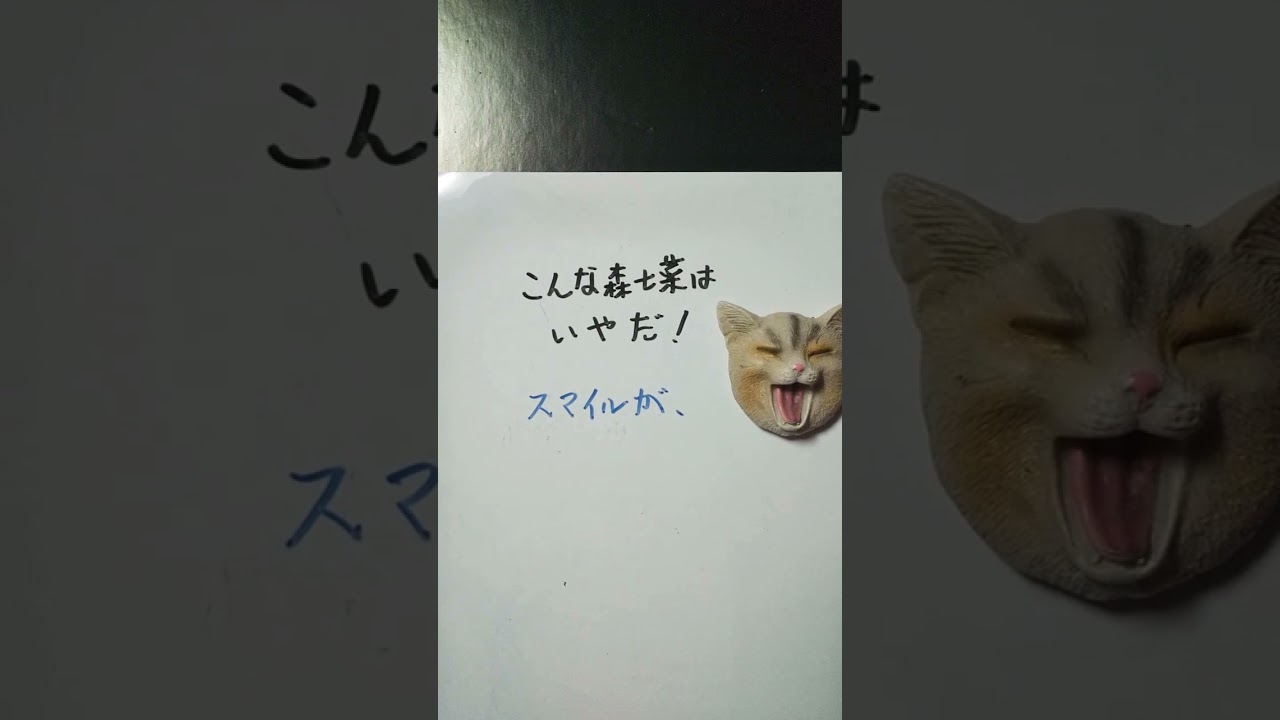 こんな森七菜は
いやだ!
スマイルが、